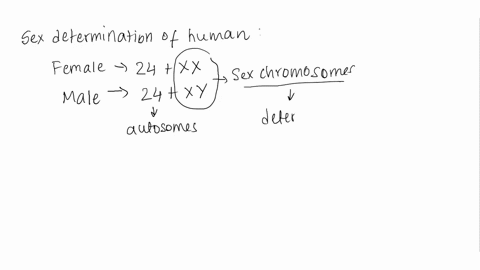 Sex determination of human :
Female → 24 + XX → Sex chromosomes
Male → 24 + XY
autosomes
deter